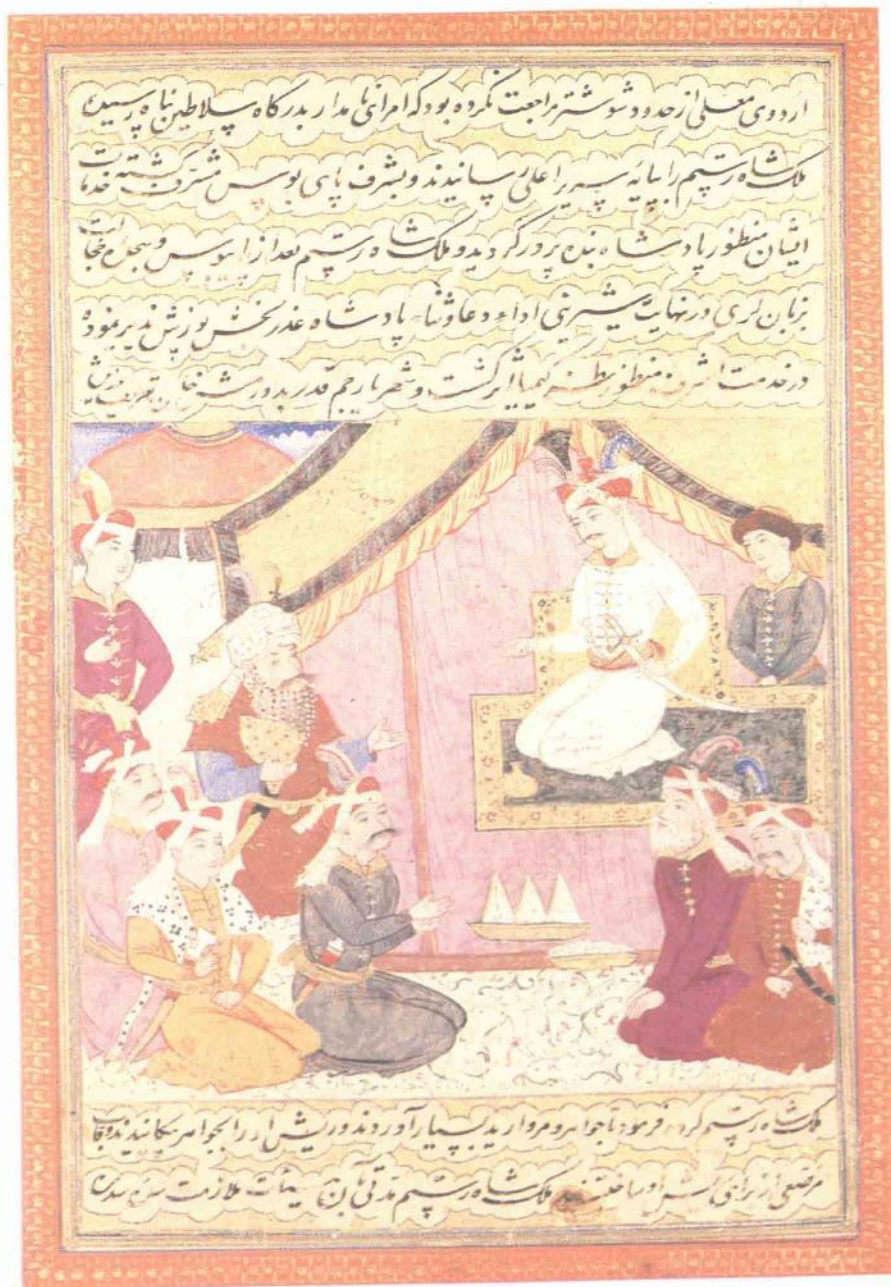 اردوی معلی از حدود شوشتر مراجعت نکرده بود که امرای نامدار بدرگاه سلاطین پناه رسیده
ملک شاه رستم را بپایه سریر اعلی رسانیدند و بشرف پای بوس مشرف گشته خدمات
ایشان منظور پادشاه بنده پرور گردید و ملک شاه رستم بعد از پایبوس و سجده
بزبان لری در نهایت شیرینی اداء دعا و ثناء پادشاه عذر بخش پوزش پذیر نموده
در خدمت اشرف منظور نظر کیمیا اثر گشت و شهریار جم قدر بدو
ملک شاه رستم کرده فرمود تا جواهر و مروارید بسیار آوردند و ریش او را بجواهر
مرصعی از برای او ساختند ملک شاه رستم مدتی بآن ملازمت